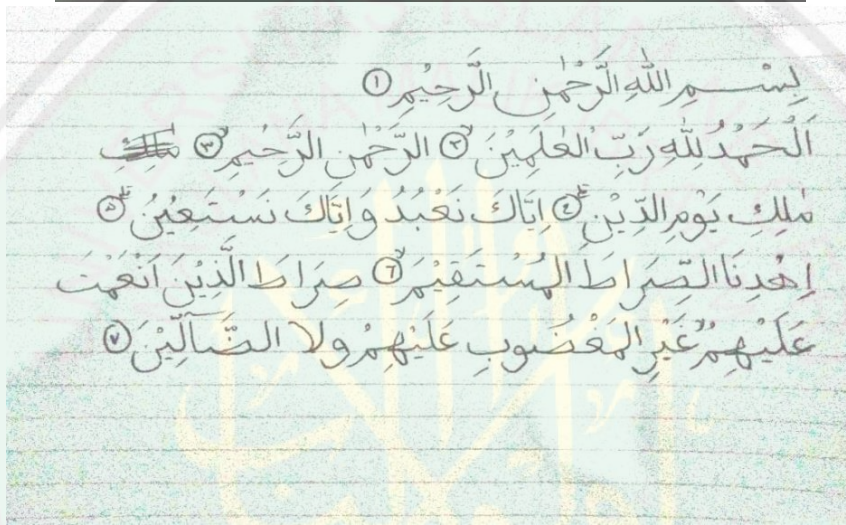 بِسْمِ اللّٰهِ الرَّحْمٰنِ الرَّحِيْمِ ①
اَلْحَمْدُ لِلّٰهِ رَبِّ الْعٰلَمِيْنَ ۙ② الرَّحْمٰنِ الرَّحِيْمِ ۙ③
مٰلِكِ يَوْمِ الدِّيْنِ ۗ④ اِيَّاكَ نَعْبُدُ وَاِيَّاكَ نَسْتَعِيْنُ ۗ⑤
اِهْدِنَا الصِّرَاطَ الْمُسْتَقِيْمَ ۙ⑥ صِرَاطَ الَّذِيْنَ اَنْعَمْتَ
عَلَيْهِمْ ەۙ غَيْرِ الْمَغْضُوْبِ عَلَيْهِمْ وَلَا الضَّاۤلِّيْنَ ⑦